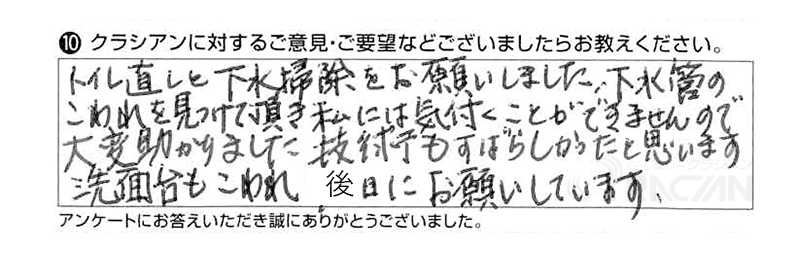 ⑩ クラシアンに対するご意見・ご要望などございましたらお教えください。
トイレ直しと下水掃除をお願いしました。下水管の
こわれを見つけて頂き私には気付くことができませんので
大変助かりました 技術もすばらしかったと思います
洗面台もこわれ 後日にお願いしています、
アンケートにお答えいただき誠にありがとうございました。